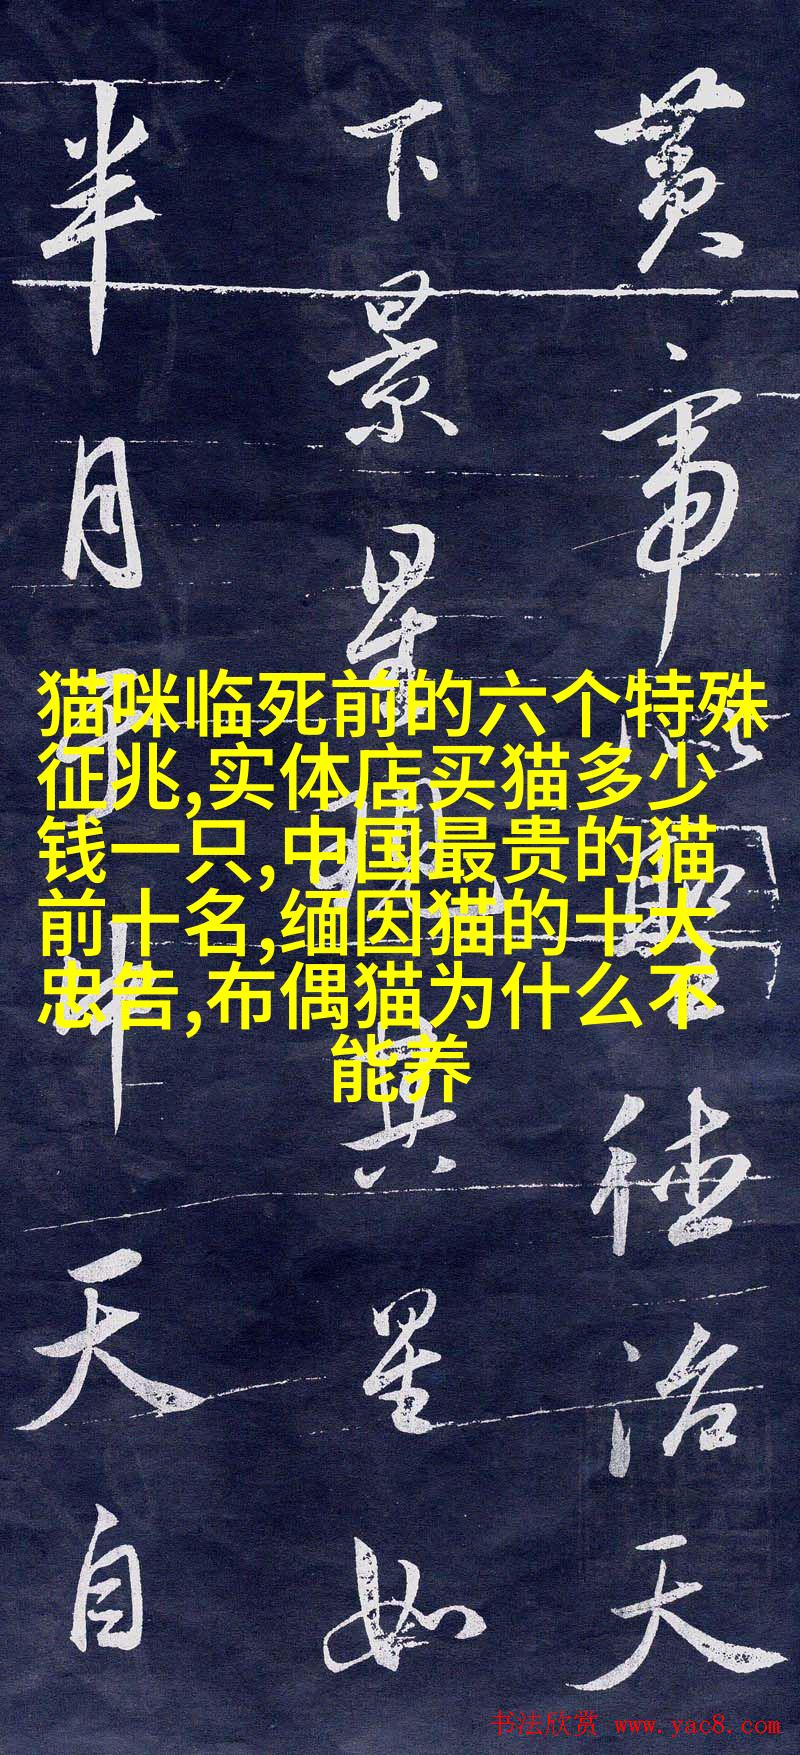 黄帝以聖德治天
下景星現其星如
半月于中天自
猫咪临死前的六个特殊
征兆,实体店买猫多少
钱一只,中国最贵的猫
前十名,缅因猫的十大
忠告,布偶猫为什么不
能养
书法欣赏 www.yac8.com